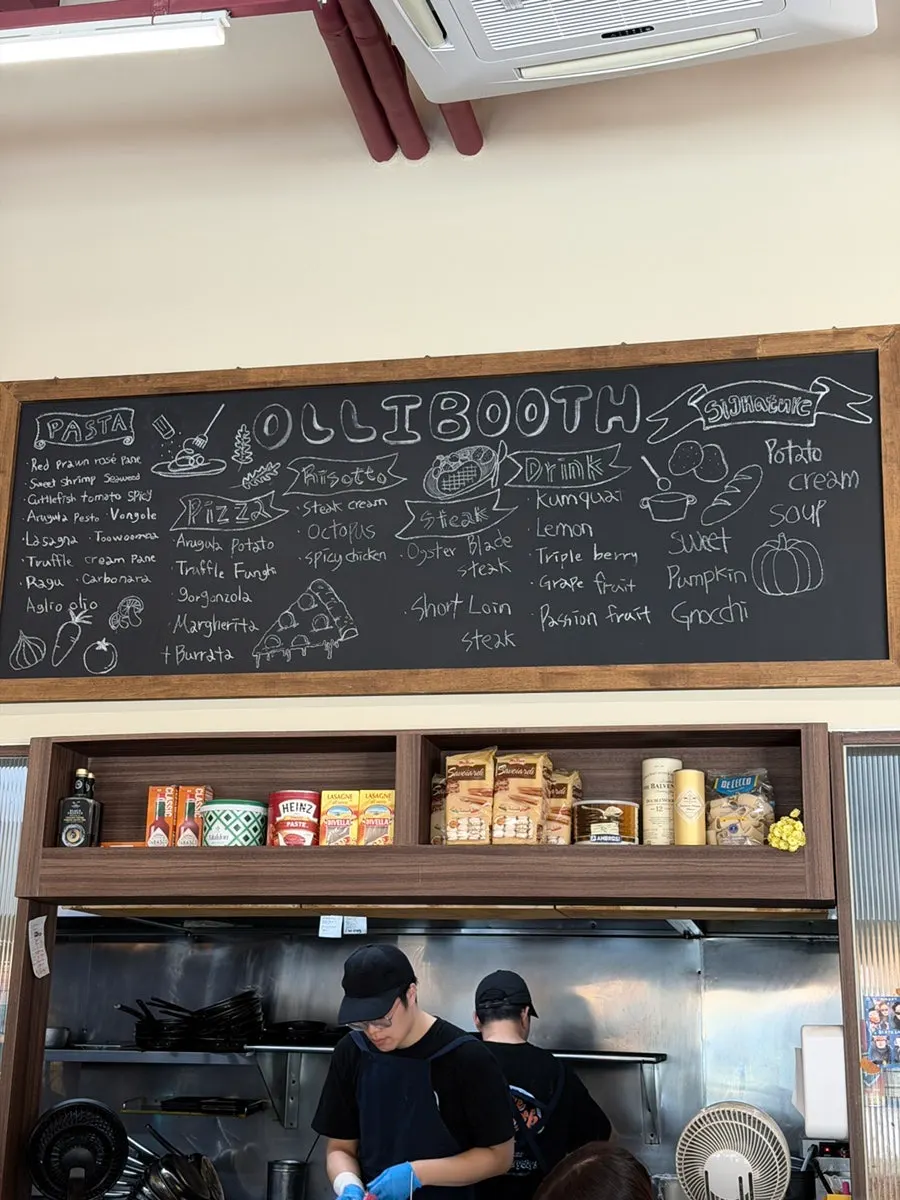 OLLIBOOTH
PASTA
· Red prawn rosé Pane
Sweet shrimp Seaweed
· Cuttlefish tomato spicy
· Arugula Pesto · Vongole
· Lasagna · Toowoomba
· Truffle cream Pane
· Ragu · Carbonara
Aglio olio
Pizza
· Arugula Potato
· Truffle Funghi
· gorgonzola
· Margherita
+ Burrata
Risotto
· Steak cream
· Octopus
· spicy chicken
Steak
· Oyster Blade
steak
· Short Loin
steak
Drink
· Kumquat
· Lemon
· Triple berry
· Grape fruit
· Passion fruit
Signature
Potato
cream
soup
Sweet
Pumpkin
Gnocchi
CLASSIC
CLASSIC
Maldon
HEINZ
PASTE
LASAGNE
DIVELLA
LASAGNE
DIVELLA
Savoiardi
Savoiardi
BALVENIE
DOUBLEWOOD
12
DE CECCO